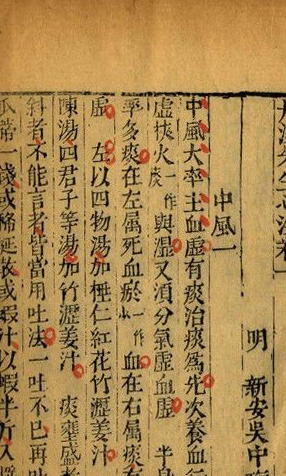 丹溪先生心法卷一
明 新安吳中
中風一
中風大率主血虛有痰治痰為先次養血行
虛挾火一作痰與濕又須分氣虛血虛 半身
率多痰在左屬死血瘀一作少血在右屬痰有
虛 左以四物湯加桃仁紅花竹瀝姜汁
陳湯四君子等湯加竹瀝姜汁 痰壅盛
斜者不能言者皆當用吐法一吐不已再吐
瓜蒂一錢或稀涎散或蝦汁以蝦半斤入醬